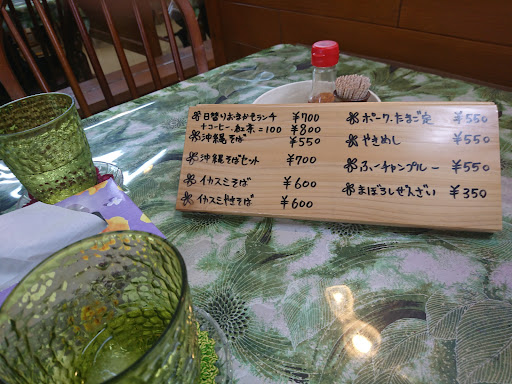 日替りおまかせランチ ¥700
+コーヒー・紅茶=100 ¥800
沖縄そば ¥550
沖縄そばセット ¥700
イカスミそば ¥600
イカスミやきそば ¥600
ポーク・たまご定 ¥550
やきめし ¥550
ふーチャンプルー ¥550
まぼろしぜんざい ¥350